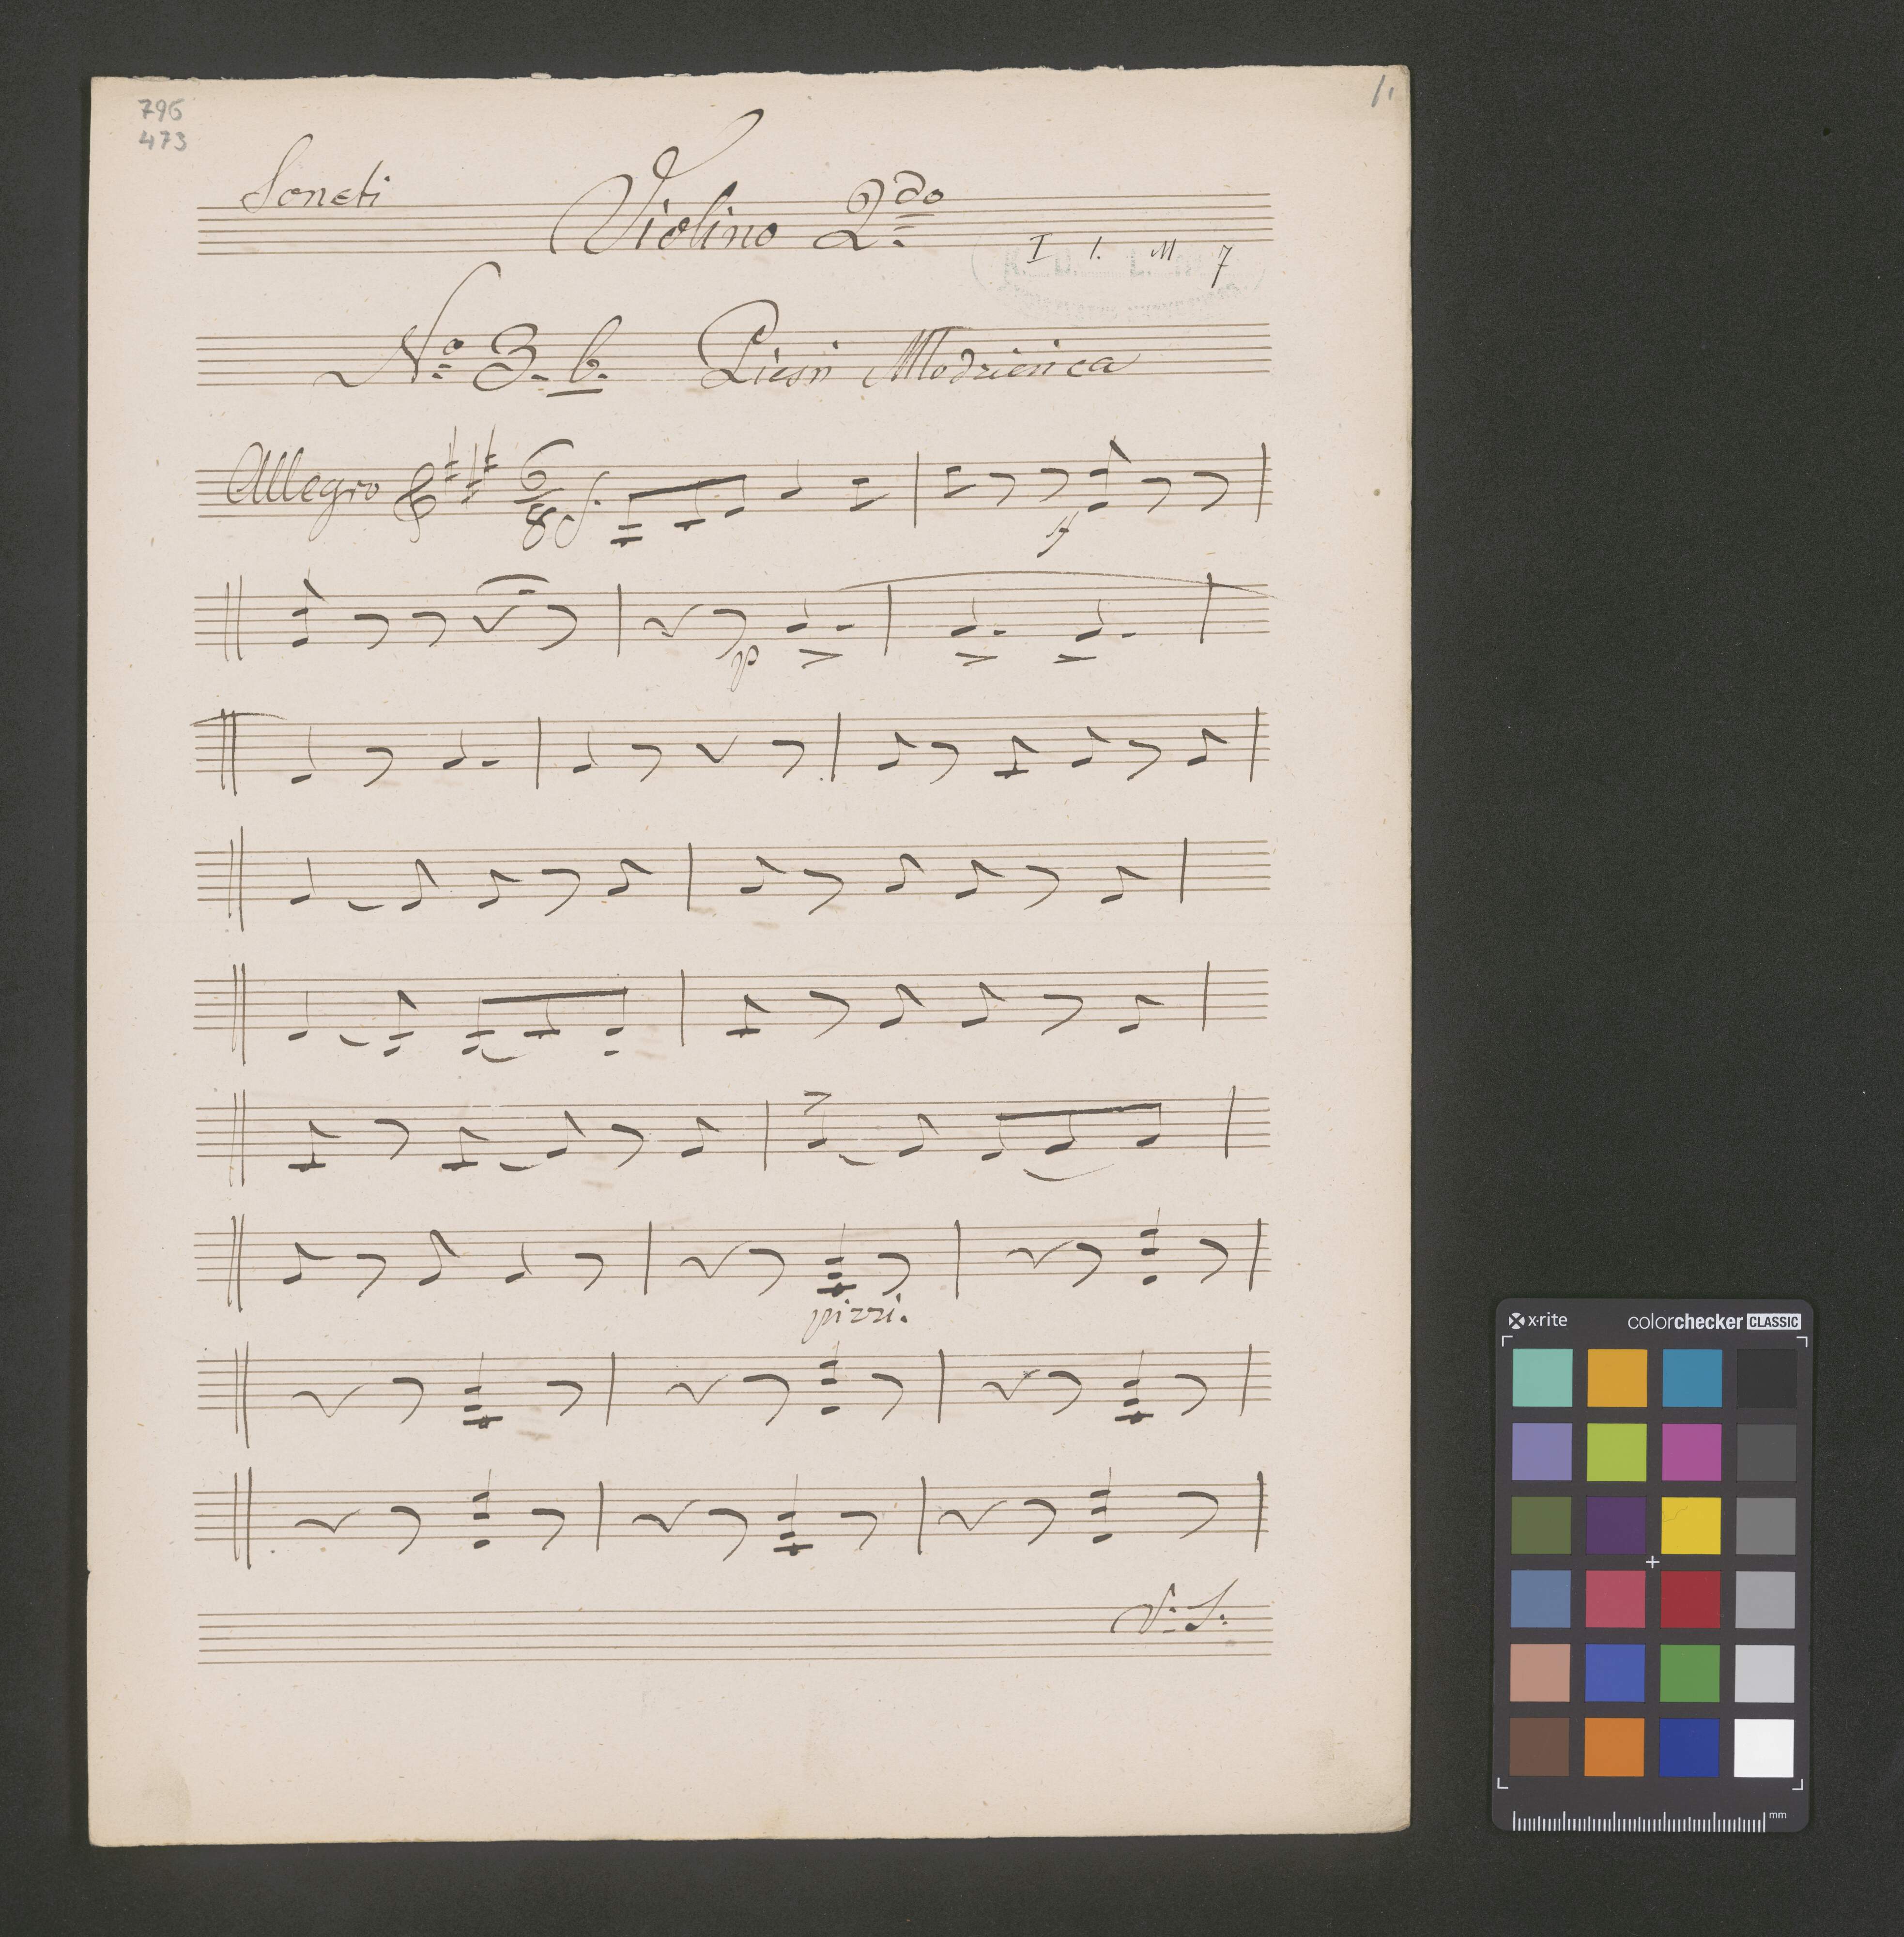 796
473
1.
Soneti
Violino 2do
I 1. M 7
No 3. b. Pieśń Mlodzieńca
Allegro 6/8 f.
sf
p
pizzi.
V: S:
x·rite colorchecker CLASSIC
mm